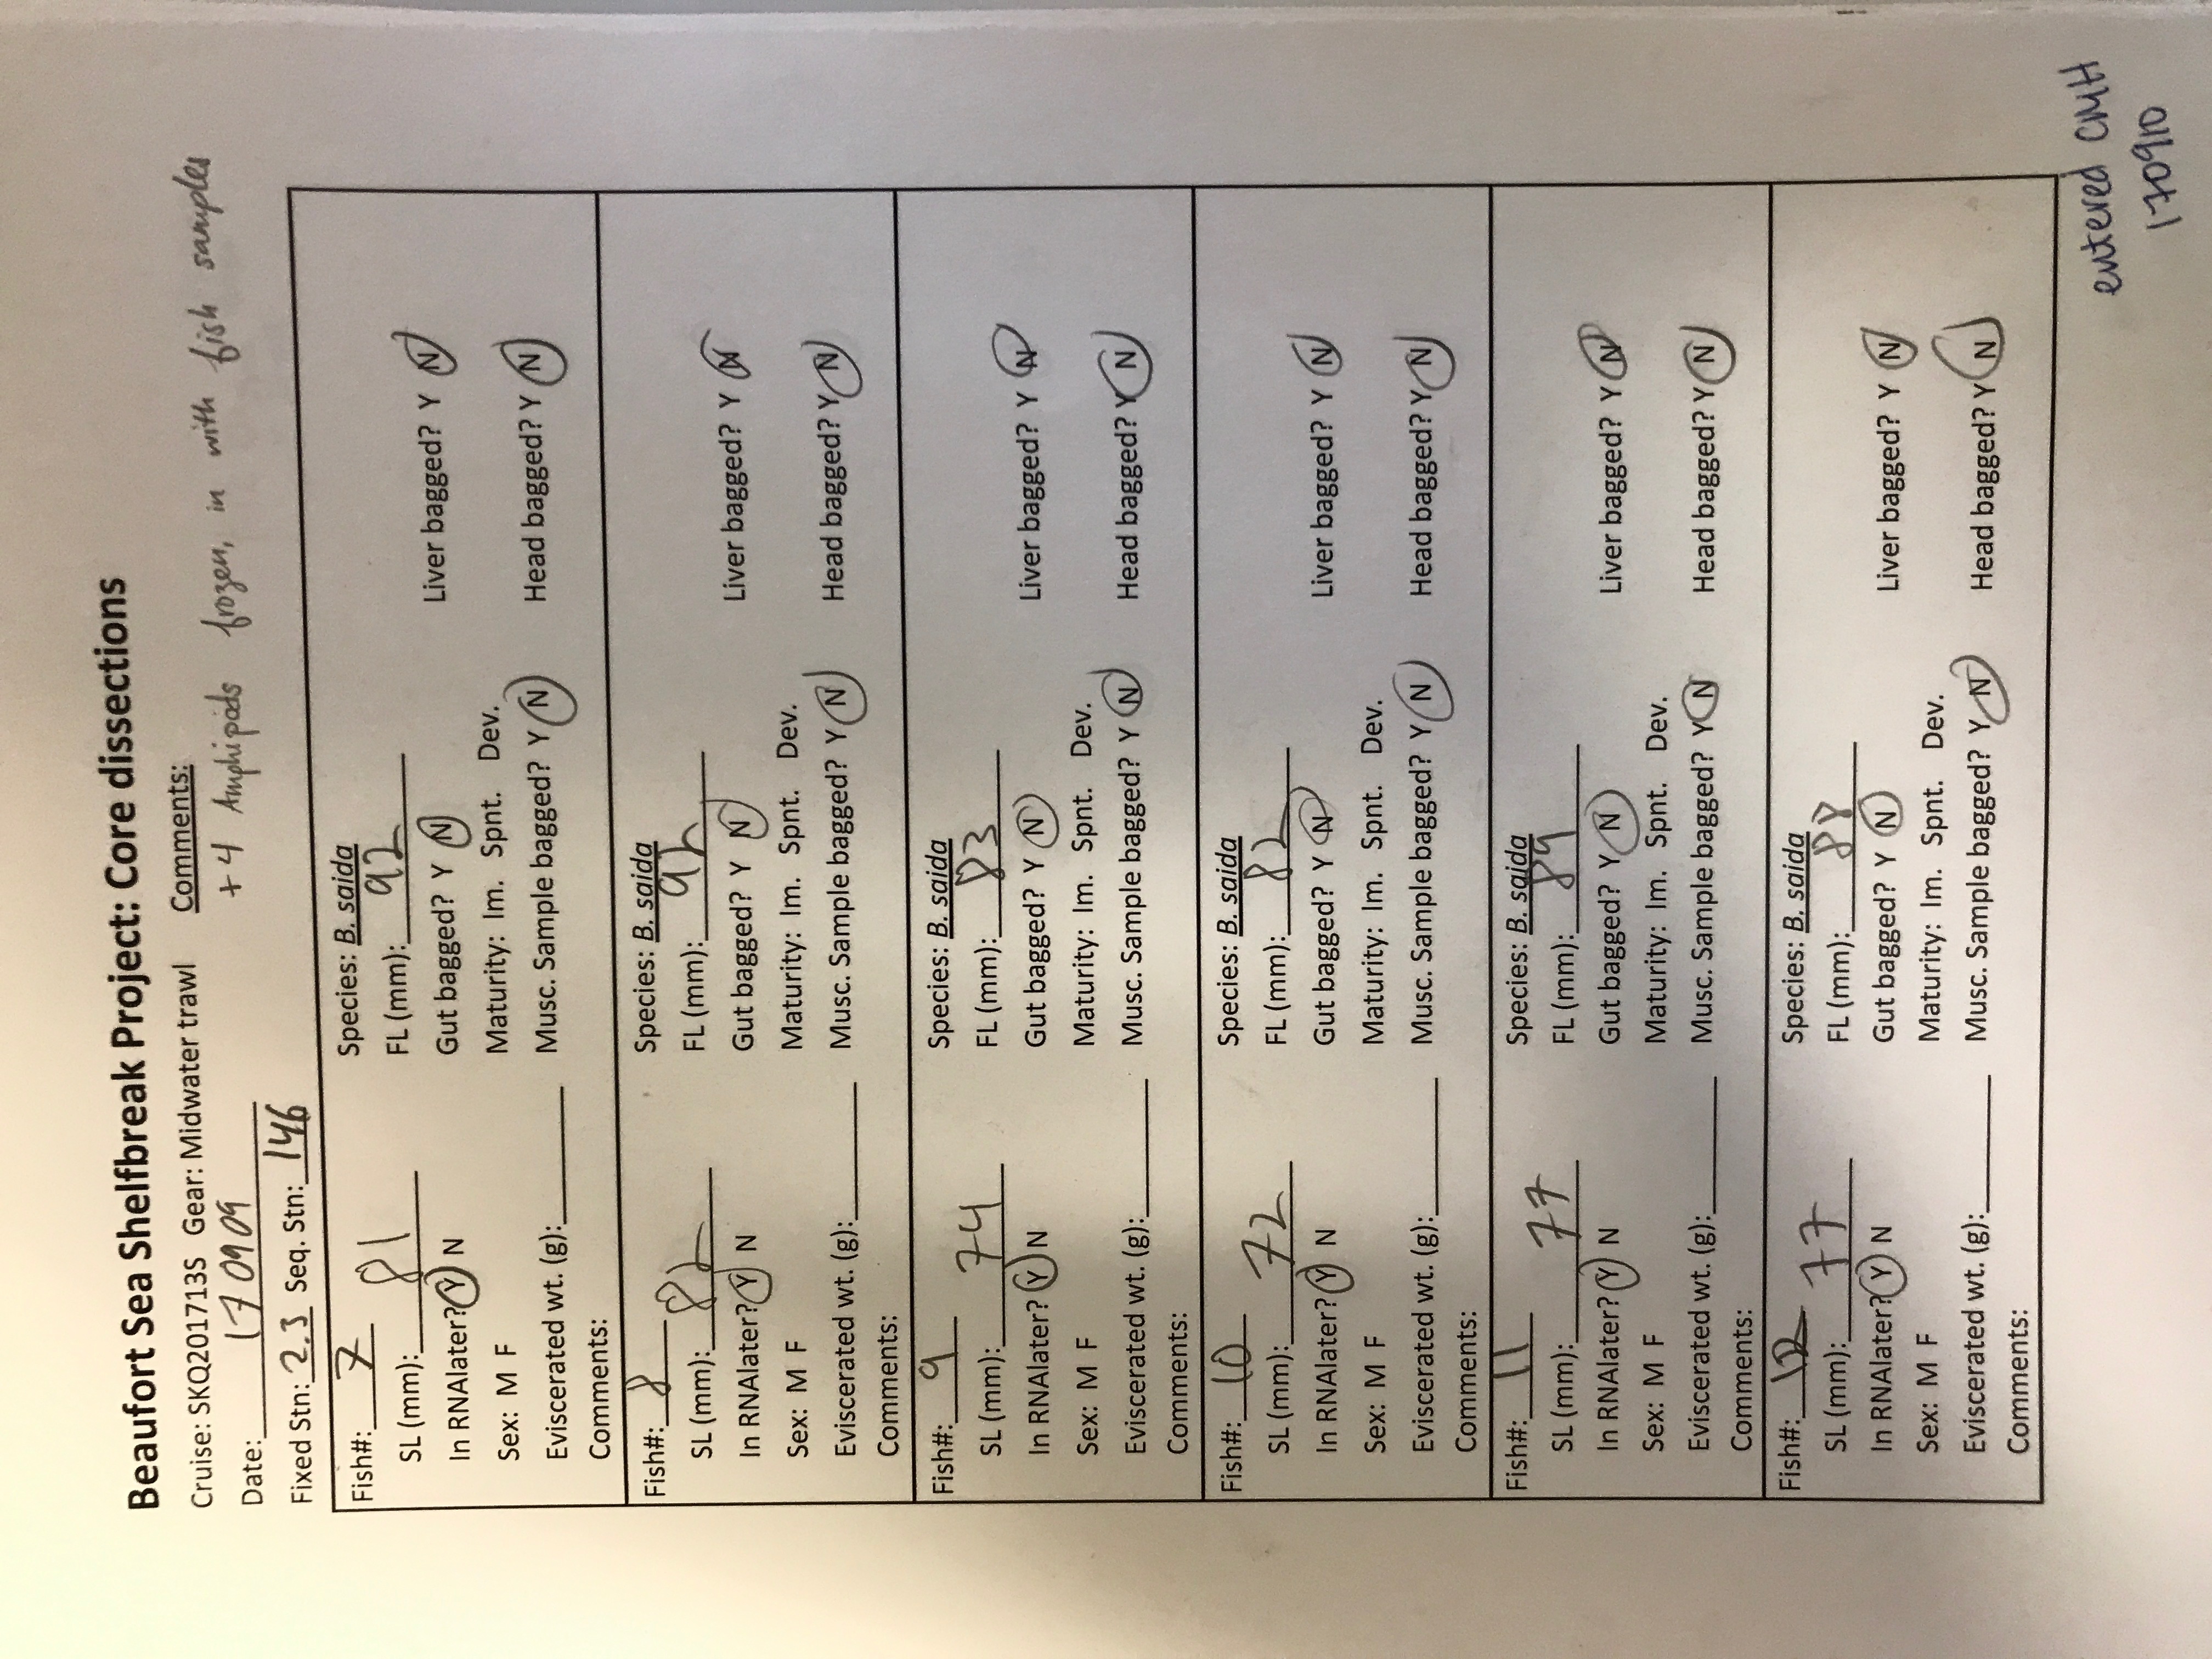 Beaufort Sea Shelfbreak Project: Core dissections
Cruise: SKQ201713S Gear: Midwater trawl Comments:
Date: 170909 + 4 Amphipods frozen, in with fish samples
Fixed Stn: 2.3 Seq. Stn: 146
Fish#: 7 Species: B. saida
SL (mm): 81 FL (mm): 92
In RNAlater? Y N Gut bagged? Y N Liver bagged? Y N
Sex: M F Maturity: Im. Spnt. Dev.
Eviscerated wt. (g): Musc. Sample bagged? Y N Head bagged? Y N
Comments:
Fish#: 8 Species: B. saida
SL (mm): 82 FL (mm): 92
In RNAlater? Y N Gut bagged? Y N Liver bagged? Y N
Sex: M F Maturity: Im. Spnt. Dev.
Eviscerated wt. (g): Musc. Sample bagged? Y N Head bagged? Y N
Comments:
Fish#: 9 Species: B. saida
SL (mm): 74 FL (mm): 83
In RNAlater? Y N Gut bagged? Y N Liver bagged? Y N
Sex: M F Maturity: Im. Spnt. Dev.
Eviscerated wt. (g): Musc. Sample bagged? Y N Head bagged? Y N
Comments:
Fish#: 10 Species: B. saida
SL (mm): 72 FL (mm): 82
In RNAlater? Y N Gut bagged? Y N Liver bagged? Y N
Sex: M F Maturity: Im. Spnt. Dev.
Eviscerated wt. (g): Musc. Sample bagged? Y N Head bagged? Y N
Comments:
Fish#: 11 Species: B. saida
SL (mm): 77 FL (mm): 89
In RNAlater? Y N Gut bagged? Y N Liver bagged? Y N
Sex: M F Maturity: Im. Spnt. Dev.
Eviscerated wt. (g): Musc. Sample bagged? Y N Head bagged? Y N
Comments:
Fish#: 12 Species: B. saida
SL (mm): 77 FL (mm): 88
In RNAlater? Y N Gut bagged? Y N Liver bagged? Y N
Sex: M F Maturity: Im. Spnt. Dev.
Eviscerated wt. (g): Musc. Sample bagged? Y N Head bagged? Y N
Comments:
entered CMH
170910